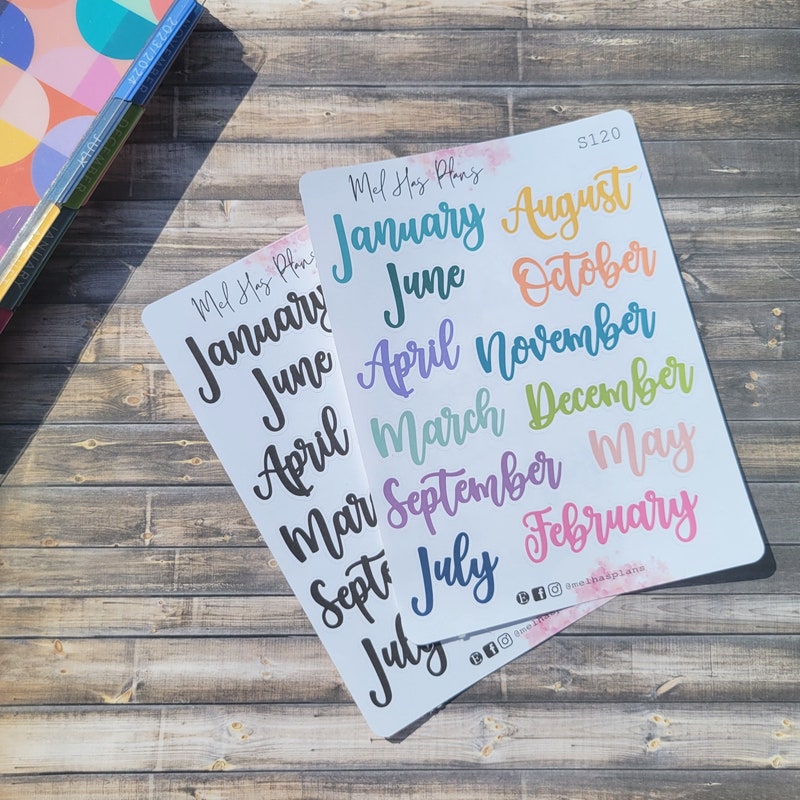 2023/2024
DECEMBER
JULY
JANUARY
S120
Mel Has Plans
January August
June October
April November
March December
September May
July February
@melhasplans
Mel Has Plans
January
June
April
Mar
Septe
July